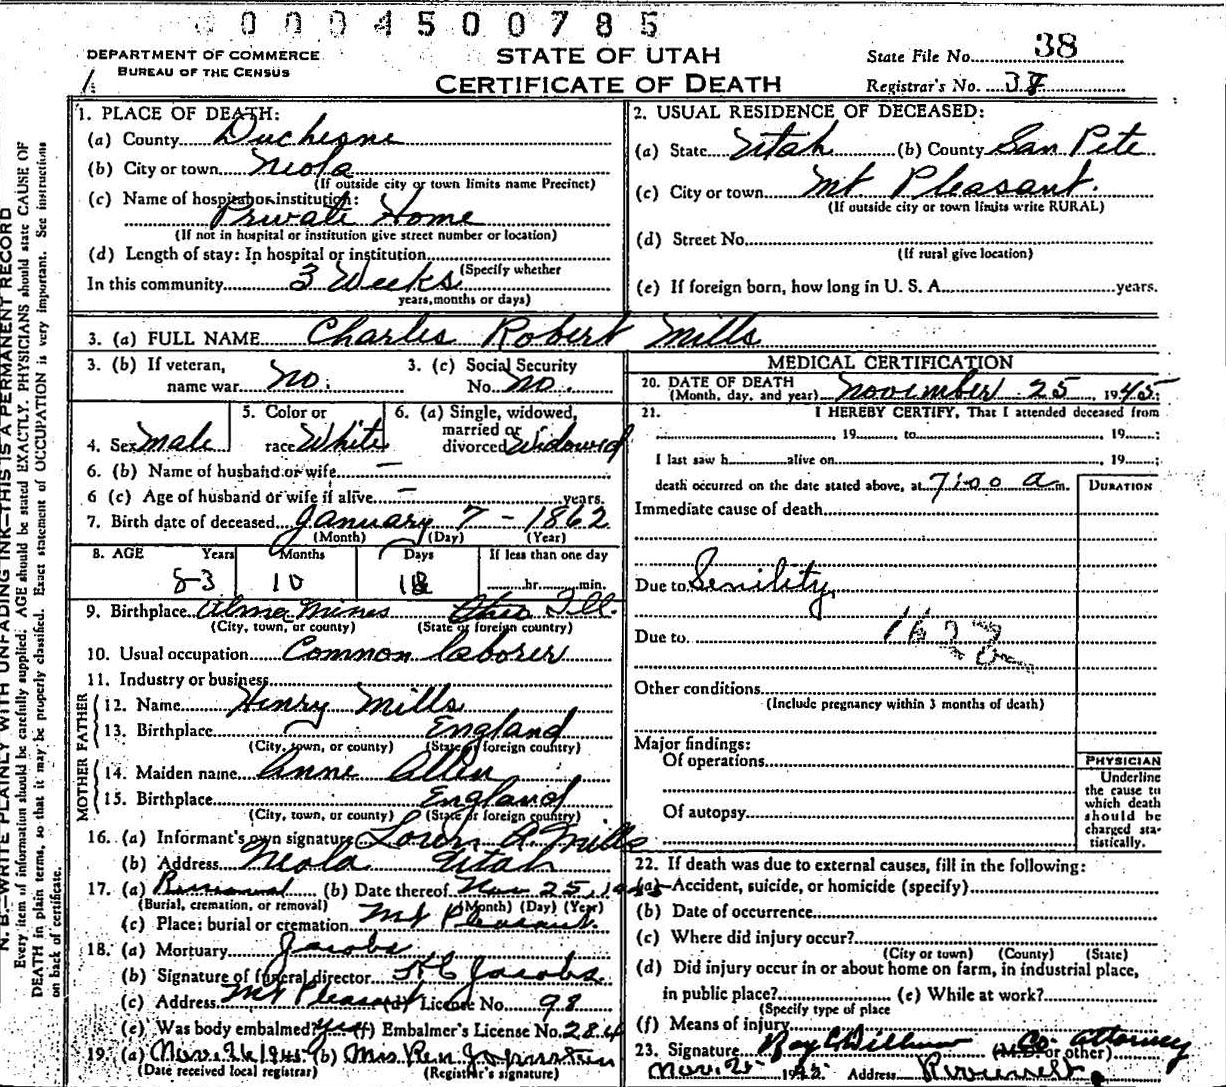 0004500785
DEPARTMENT OF COMMERCE
BUREAU OF THE CENSUS
STATE OF UTAH
CERTIFICATE OF DEATH
State File No. 38
Registrar's No. 38
N. B.—WRITE PLAINLY WITH UNFADING INK—THIS IS A PERMANENT RECORD
Every item of information should be carefully supplied. AGE should be stated EXACTLY. PHYSICIANS should state CAUSE OF
DEATH in plain terms, so that it may be properly classified. Exact statement of OCCUPATION is very important. See instruction
on back of certificate.
1. PLACE OF DEATH:
(a) County Duchesne
(b) City or town Neola
(If outside city or town limits name Precinct)
(c) Name of hospital or institution:
Private Home
(If not in hospital or institution give street number or location)
(d) Length of stay: In hospital or institution
(Specify whether
In this community 3 Weeks
years, months or days)
2. USUAL RESIDENCE OF DECEASED:
(a) State Utah (b) County San Pete
(c) City or town Mt Pleasant.
(If outside city or town limits write RURAL)
(d) Street No.
(If rural give location)
(e) If foreign born, how long in U. S. A. years.
3. (a) FULL NAME Charles Robert Mills
3. (b) If veteran,
name war no.
3. (c) Social Security
No. no.
4. Sex male
5. Color or
race White
6. (a) Single, widowed,
married or
divorced Widowed
6. (b) Name of husband or wife —
6 (c) Age of husband or wife if alive — years.
7. Birth date of deceased January 7 - 1862
(Month) (Day) (Year)
8. AGE Years Months Days If less than one day
83 10 18 hr. min.
9. Birthplace Alma Mines Ohio Ill.
(City, town, or county) (State or foreign country)
10. Usual occupation Common laborer
11. Industry or business
FATHER
12. Name Henry Mills
13. Birthplace England
(City, town, or county) (State or foreign country)
MOTHER
14. Maiden name Anne Allen
15. Birthplace England
(City, town, or county) (State or foreign country)
16. (a) Informant's own signature Loren A. Mills
(b) Address Neola Utah
17. (a) Removal (b) Date thereof Nov 25, 1945
(Burial, cremation, or removal) (Month) (Day) (Year)
(c) Place: burial or cremation Mt Pleasant.
18. (a) Mortuary Jacobs
(b) Signature of funeral director Jacobs
(c) Address Mt Pleasant (d) License No. 98
(e) Was body embalmed? yes (f) Embalmer's License No. 284
19. (a) Nov. 26 1945 (b) Mrs Ren Johnston
(Date received local registrar) (Registrar's signature)
MEDICAL CERTIFICATION
20. DATE OF DEATH
(Month, day, and year) November 25, 1945
21. I HEREBY CERTIFY, That I attended deceased from
, 19 , to , 19 ;
I last saw h alive on , 19 ;
death occurred on the date stated above, at 7:00 a m.
DURATION
Immediate cause of death
Due to Senility,
Due to
Other conditions
(Include pregnancy within 3 months of death)
Major findings:
Of operations
Of autopsy
PHYSICIAN
Underline
the cause to
which death
should be
charged sta-
tistically.
22. If death was due to external causes, fill in the following:
(a) Accident, suicide, or homicide (specify)
(b) Date of occurrence
(c) Where did injury occur?
(City or town) (County) (State)
(d) Did injury occur in or about home on farm, in industrial place,
in public place? (e) While at work?
(Specify type of place
(f) Means of injury
23. Signature Ray Co. attorney
(M.D. or other)
Nov. 25 1945 Address Roosevelt